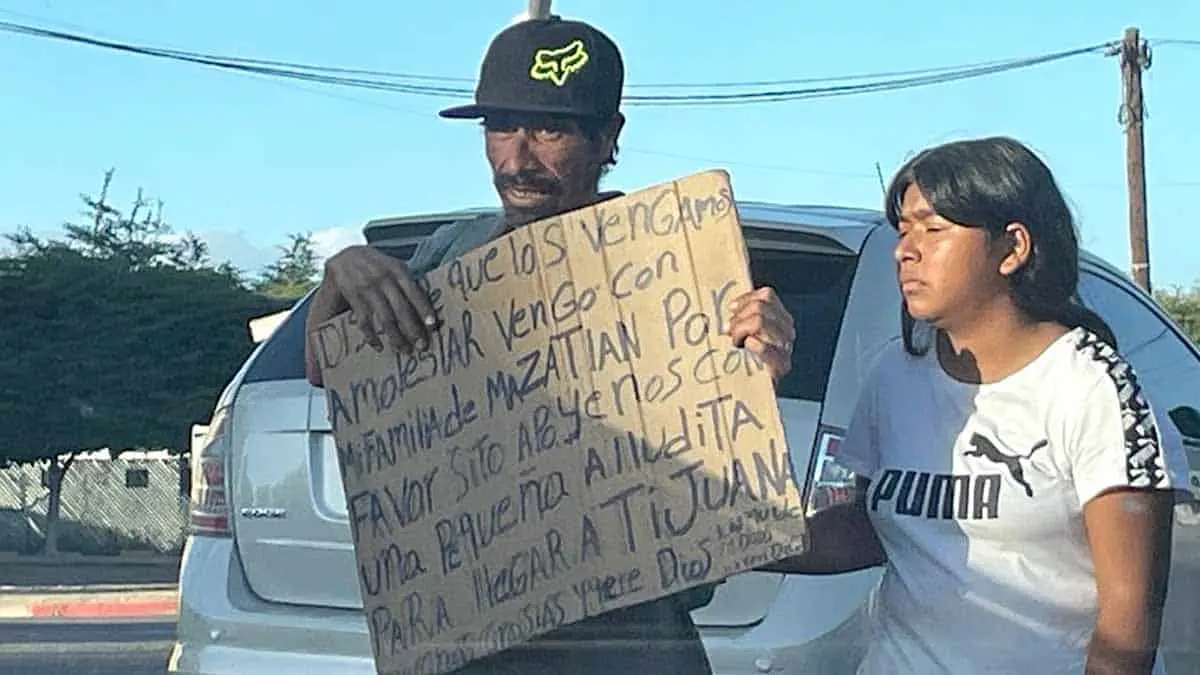 que los vengAmos
AmolestAR vengo con
mi FAMiliA de MAZATlAN PoR
FAVoR Sito APoYenos con
unA PeqUeñA AlludiTA
PARA llegAR A TiJUANA
y gere Dios
PUMA